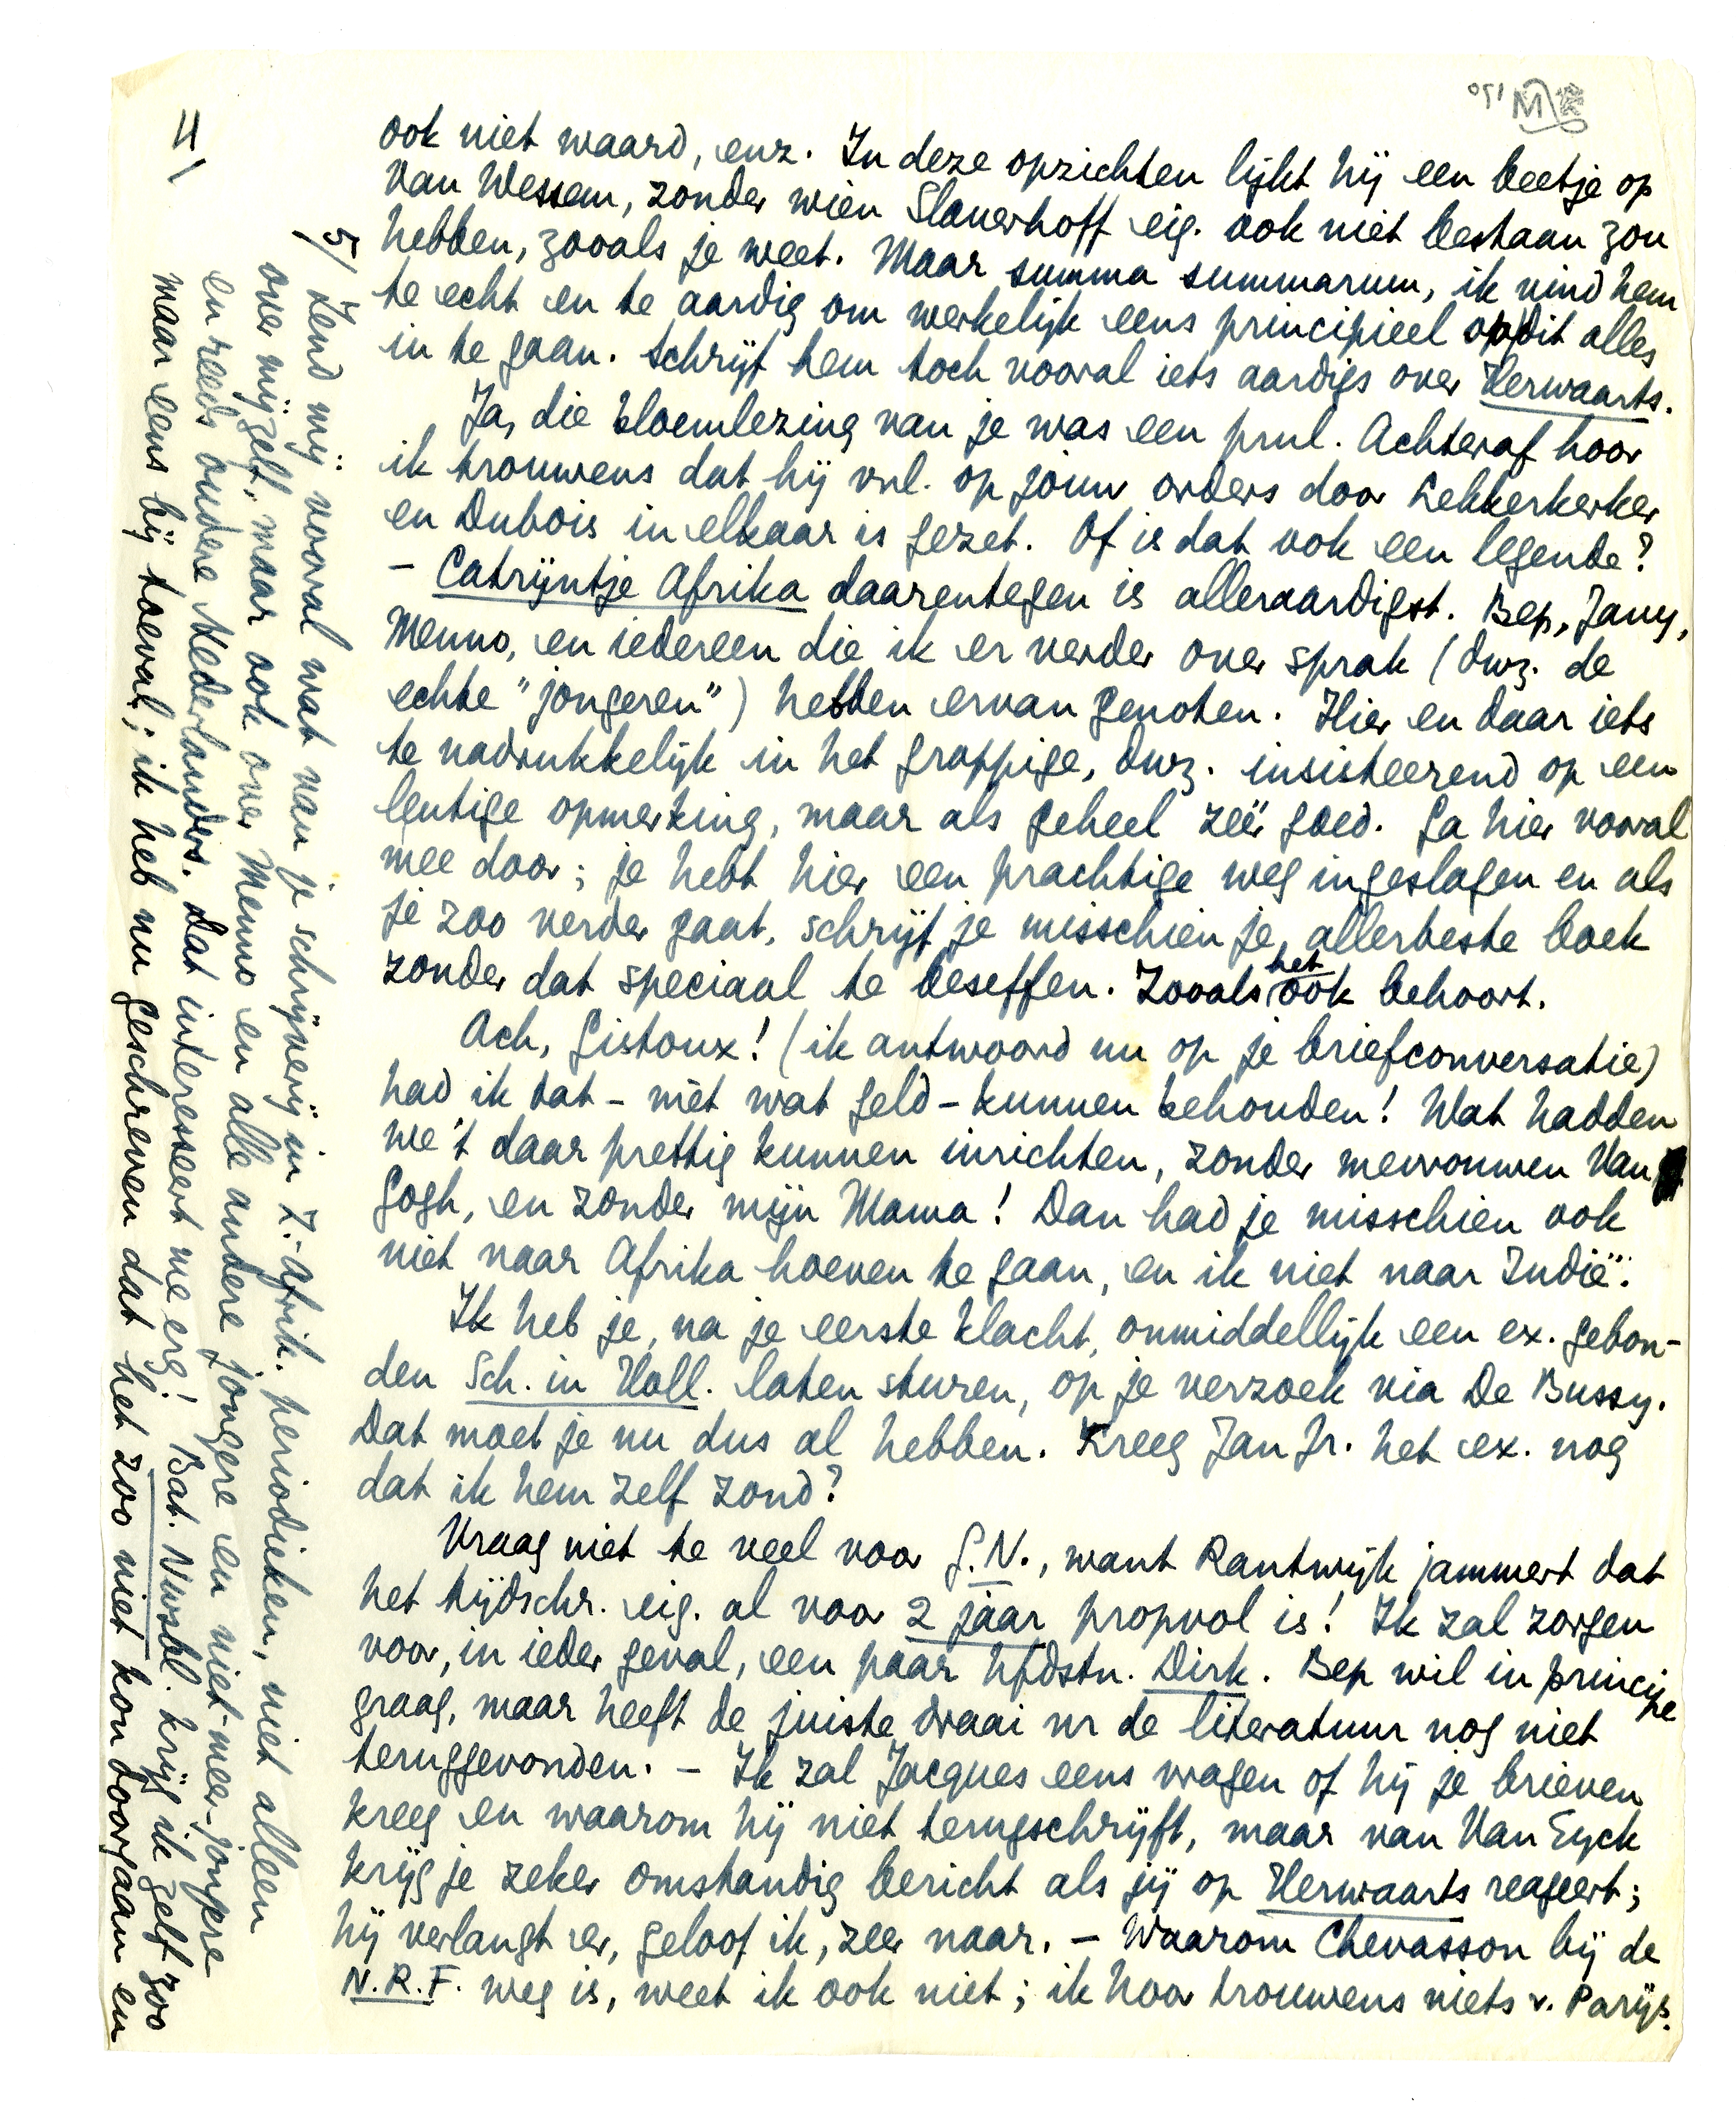 ook niet waard, enz. In deze opzichten lijkt hij een beetje op
Van Wessem, zonder wien Slauerhoff eig. ook niet bestaan zou
hebben, zooals je weet. Maar summa summarum, ik vind hem
te echt en te aardig om werkelijk eens principieel op dit alles
in te gaan. Schrijf hem toch vooral iets aardigs over Herwaarts.
Ja, die bloemlezing van je was een prul. Achteraf hoor
ik trouwens dat hij vnl. op jouw orders door Lekkerkerker
en Dubois in elkaar is gezet. Of is dat ook een legende?
- Catrijntje Afrika daarentegen is alleraardigst. Bep, Jany,
Menno, en iedereen die ik er verder over sprak (dwz. de
echte "jongeren") hebben ervan genoten. Hier en daar iets
te nadrukkelijk in het grappige, dwz. insisteerend op een
leutige opmerking, maar als geheel zéér goed. Ga hier vooral
mee door; je hebt hier een prachtige weg ingeslagen en als
je zoo verder gaat, schrijf je misschien je allerbeste boek
zonder dat speciaal te beseffen. Zooals het ook behoort.
Ach, Gistoux! (ik antwoord nu op je briefconversatie)
had ik dat - mèt wat geld - kunnen behouden! Wat hadden
we 't daar prettig kunnen inrichten, zonder mevrouwen Van
Gogh, en zonder mijn Mama! Dan had je misschien ook
niet naar Afrika hoeven te gaan, en ik niet naar Indië.
Ik heb je, na je eerste klacht, onmiddellijk een ex. gebon-
den Sch. in Holl. laten sturen, op je verzoek via De Bussy.
Dat moet je nu dus al hebben. Kreeg Jan Jr. het ex. nog
dat ik hem zelf zond?
Vraag niet te veel voor G.N., want Rantwijk jammert dat
het tijdschr. eig. al voor 2 jaar propvol is! Ik zal zorgen
voor, in ieder geval, een paar hfdstn. Dirk. Bep wil in principe
graag, maar heeft de juiste draai nr de literatuur nog niet
teruggevonden. - Ik zal Jacques eens vragen of hij je brieven
kreeg en waarom hij niet terugschrijft, maar van Van Eyck
krijg je zeker omstandig bericht als jij op Herwaarts reageert;
hij verlangt er, geloof ik, zeer naar. - Waarom Chevasson bij de
N.R.F. weg is, weet ik ook niet; ik hoor trouwens niets v. Parijs.
4/
5/ Zend mij vooral wat van je schrijverij in Z.-Afrik. periodieken, niet alleen
over mijzelf, maar ook over Menno en alle andere jongere en niet-meer-jongere
en reeds oudere Nederlanders. Dat interesseert me erg! Bat. Nwsbl. krijg ik zelf zoo
maar eens bij toeval; ik heb nu geschreven dat het zoo niet kon doorgaan en